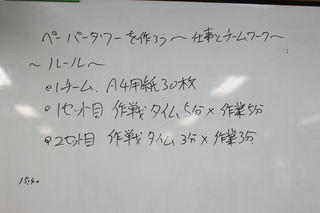 ペーパータワーを作ろう〜仕事とチームワーク〜
〜ルール〜
•1チーム、A4用紙30枚
•1セット目 作戦タイム5分×作業5分
•2セット目 作戦タイム3分×作業3分